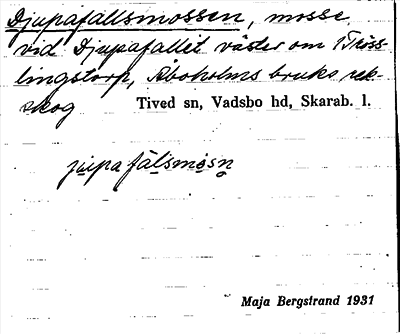 Djupafallsmossen, mosse
vid Djupafallet väster om Tröss-
lingstorp, Åboholms bruks rek-
skog Tived sn, Vadsbo hd, Skarab. l.
jupa fälsmosn
Maja Bergstrand 1931